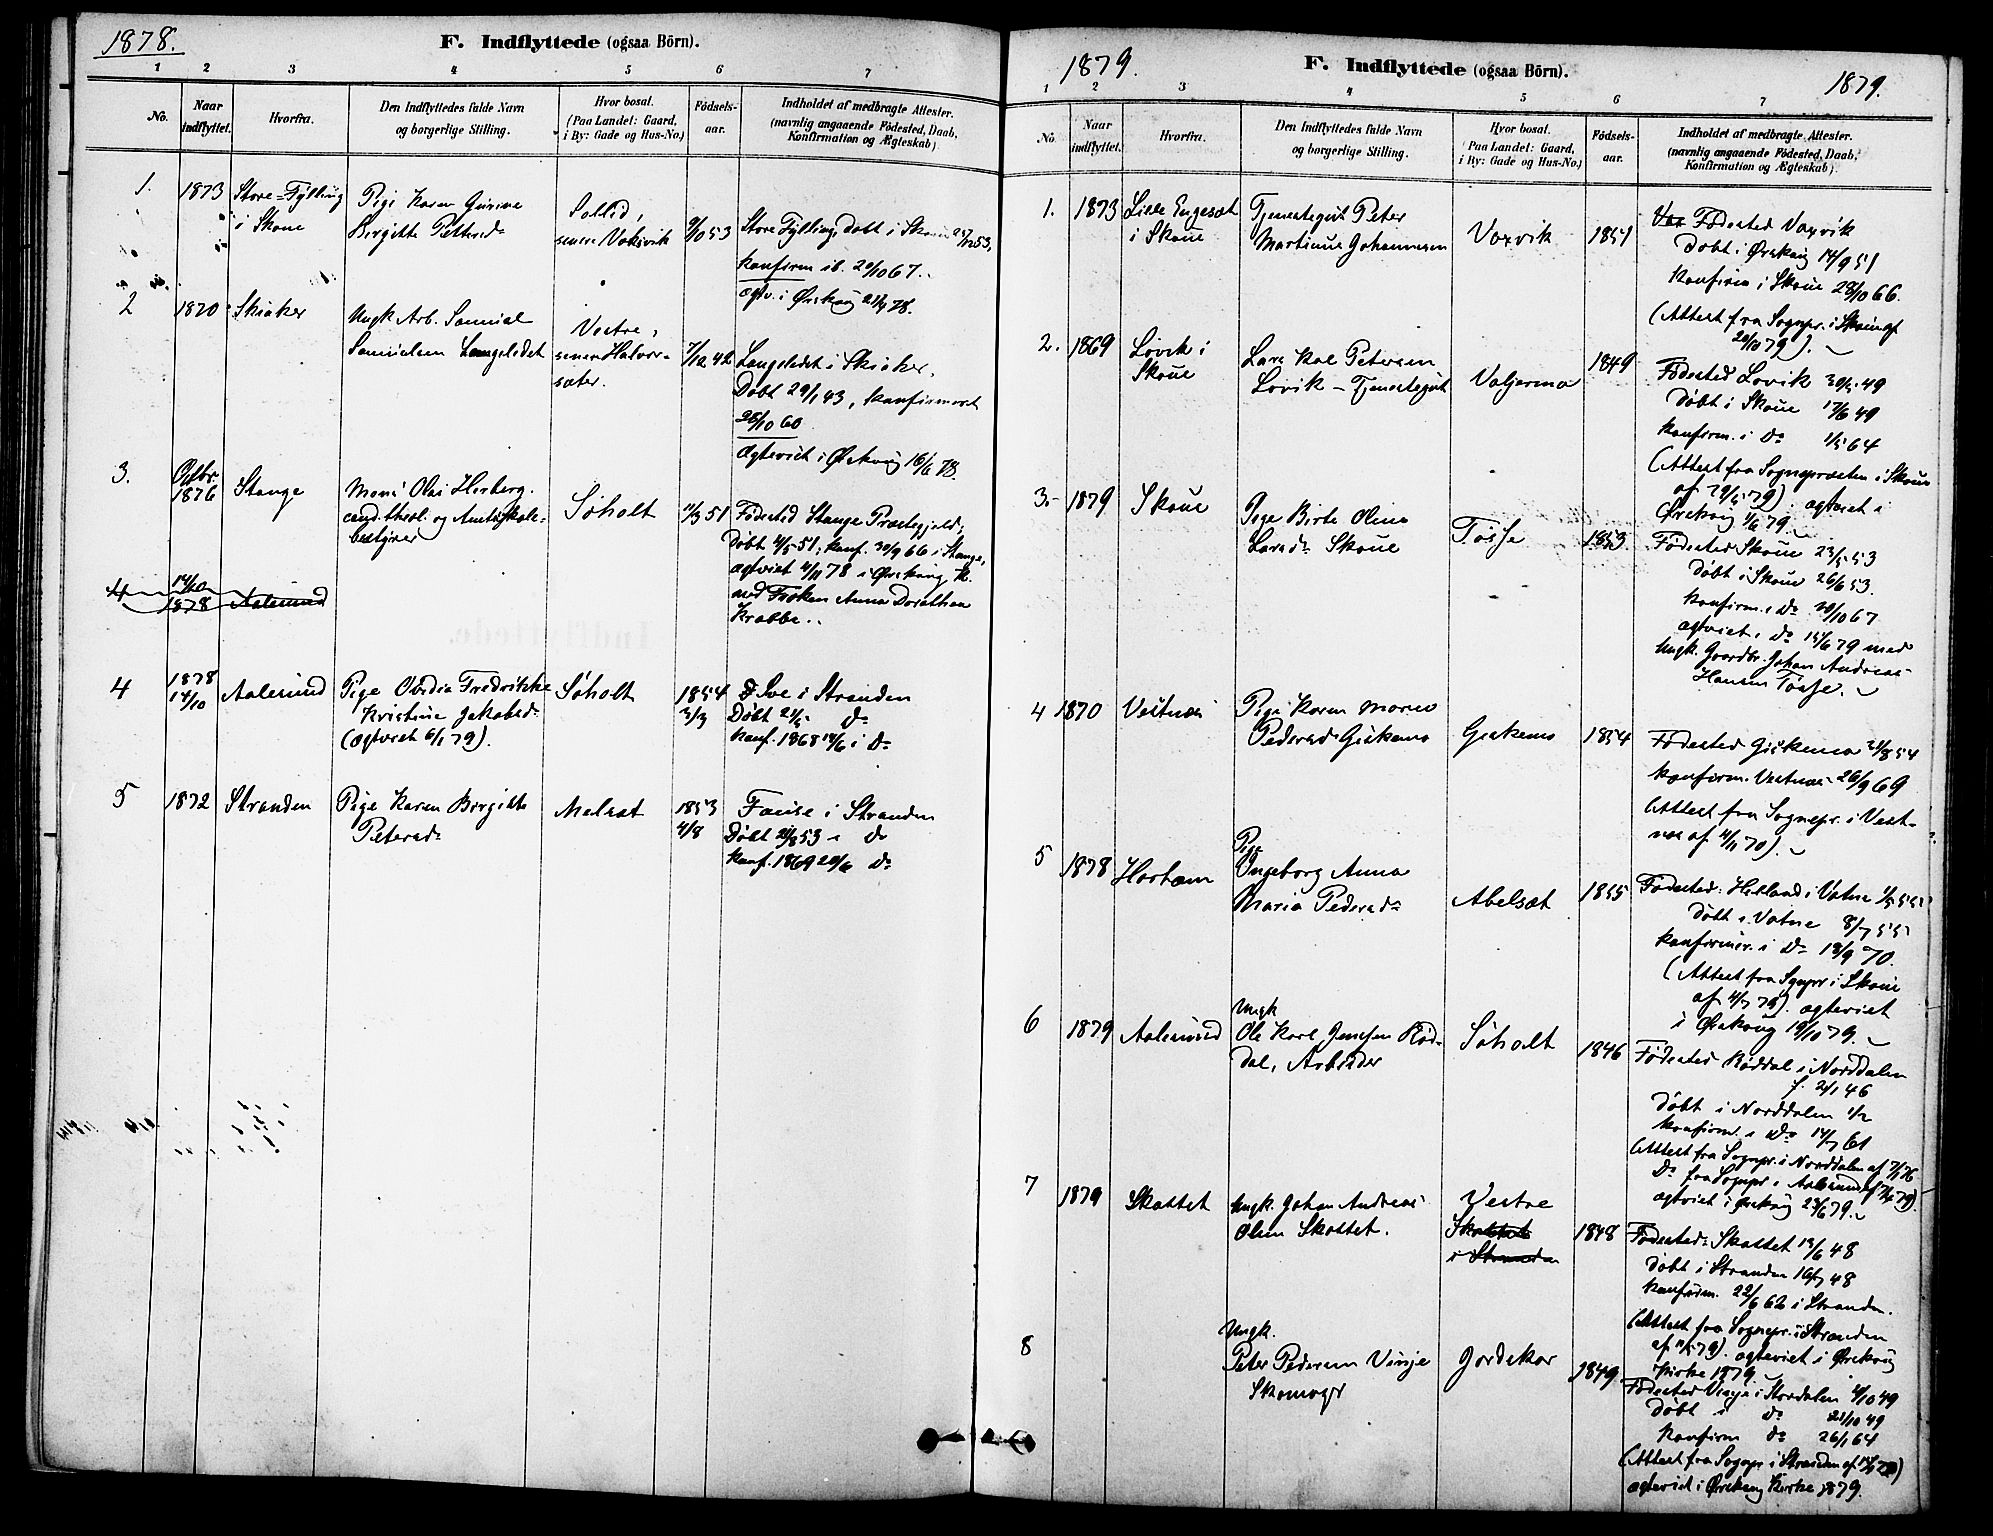 1878.
F. Indflyttede (ogsaa Börn).
1 2 3 4 5 6 7
No.
Naar indflyttet.
Hvorfra.
Den Indflyttedes fulde Navn
og borgerlige Stilling.
Hvor bosat.
(Paa Landet: Gaard,
i By: Gade og Hus-No.)
Födsels-
aar.
Indholdet af medbragte Attester.
(navnlig angaaende Födested, Daab,
Konfirmation og Ægteskab).
1. 1873 Store-Fylling
i Skoue
Pige Karen Gurine
Birgitte Pettersd
senere Vaksvik
Store Fylling, döbt i
konfirm ib. 20/10 67.
ægtv. i Ørskoug 21/4 78.
2 1870 Skiaker
Ungk Arb. Samuel
Samuelsen Langeledet
Vestre,
senere Halvor-
sæter.
7/12 42
Langeledet i Skiaker.
Döbt 29/1 43, konfirmeret
28/10 60
ægteviet i Ørskoug 16/6 78.
3. Octbr.
1876 Stange
Olai Herberg.
cand. theol. og Amtsskole-
bestyrer
Søholt
Födested Stange Præstegjeld,
Döbt 4/5 51, konf. 30/9 66 i Stange,
ægteviet 4/11 78 i Ørskoug K.
med Frøken Anna Dorothea
Krabbe.
4 14/10
1878 Aalesund
4 1878
14/10 Aalesund
Pige Obedia Fredrikke
Kristine Jakobsd
(ægteviet 6/1 79).
Søholt
1854
3/3
Sve i Stranden
Döbt 21/5 do
konf. 1868 14/6 i do
5 1872 Stranden
Pige Karen Birgitte
Petersd
Melsæt
1853
4/8
Fause i Stranden
Döbt 21/8 53 i do
konf. 1869 20/6 do
1879.
F. Indflyttede (ogsaa Börn).
1879.
1 2 3 4 5 6 7
No.
Naar
indflyttet.
Hvorfra.
Den Indflyttedes fulde Navn
og borgerlige Stilling.
Hvor bosat.
(Paa Landet: Gaard,
i By: Gade og Hus-No.)
Födsels-
aar.
Indholdet af medbragte Attester.
(navnlig angaaende Födested, Daab,
Konfirmation og Ægteskab).
1. 1873 Lille Engesæt
i Skoue
Tjenestegut Peter
Martinus Johannesen
Vaxvik
1851
Födested Vaxvik
Döbt i Ørskoug 14/9 51
Konfirm i Skoue 28/10 66.
(Attest fra Sognepr. i Skoue af
20/10 79).
2. 1869 Lövik i
Skoue
Lars Kol Petersen
Lovik – Tjenestegut
Valjerma
1849
Födested Lovik 30/5 49
Döbt i Skoue 17/6 49
konfirm. i do 1/5 64
(Attest fra Sognepræsten i Skoue
af 29/5 79). ægteviet i
Ørskoug 1/6 79.
3. 1879 Skoue
Pige Birte Olina
Larsd Skoue
Tøsse
1853
Födested Skoue 23/5 53
döbt i Skoue 26/6 53.
konfirm. i do 20/10 67
ægteviet i do 15/6 79 med
Ungk. Gaardbr. Johan Andreas
Hansen Tøsse.
4 1870 Vestnæs
Pige Karen Marie
Pedersd Gjekema
1854
Födested Gjekema 21/8 54
konfirm. Vestnæs 26/9 69
(Attest fra Sognepr. i Vest-
næs af 4/11 70).
5 1878 Harham
Pige
Ingeborg Anna
Maria Pedersd
Abelsæt
1855
Födested: Helland i Vatne 1/5 55
döbt i Vatne 8/7 55
konfirmer. i do 18/9 70.
(Attest fra Sgnpr. i Skoue
af 4/7 79). ægteviet
i Ørskoug 19/10 79.
6 1879 Aalesund
Ungk
Ole Karl Jensen Röd-
dal, Arbeider
Søholt
1846
Födested Röddal i Norddalen
f. 21/1 46
döbt i Norddalen 1/2
konfirm. i do 14/7 61
(Attest fra Sognepr. i Norddalen af 7/1 76
do fra Sognepr i Aalesund
ægteviet i Ørskoug 29/6 79.
7 1879 Skottet
Ungk. Johan Andreas
Olsen Skottet.
Vestre
Skottet
i Stranden
1848
Födested: Skottet 19/6 48
döbt i Stranden 16/7 48
konfirm. 22/6 62 i Stranden.
(Attest fra Sognepr. i Stranden
af 11/5 79). ægteviet i Ørskoug
Kirke 1879.
8
Ungk.
Peter Pedersen Vinje
Skomager
Jordekar
1849.
Födested Vinje i Stordalen 4/10 49
döbt i do 21/10 49
konfirm do 26/1 64
(Attest fra Sognepr i Stranden af
ægteviet i Ørskoug Kirke 1879.